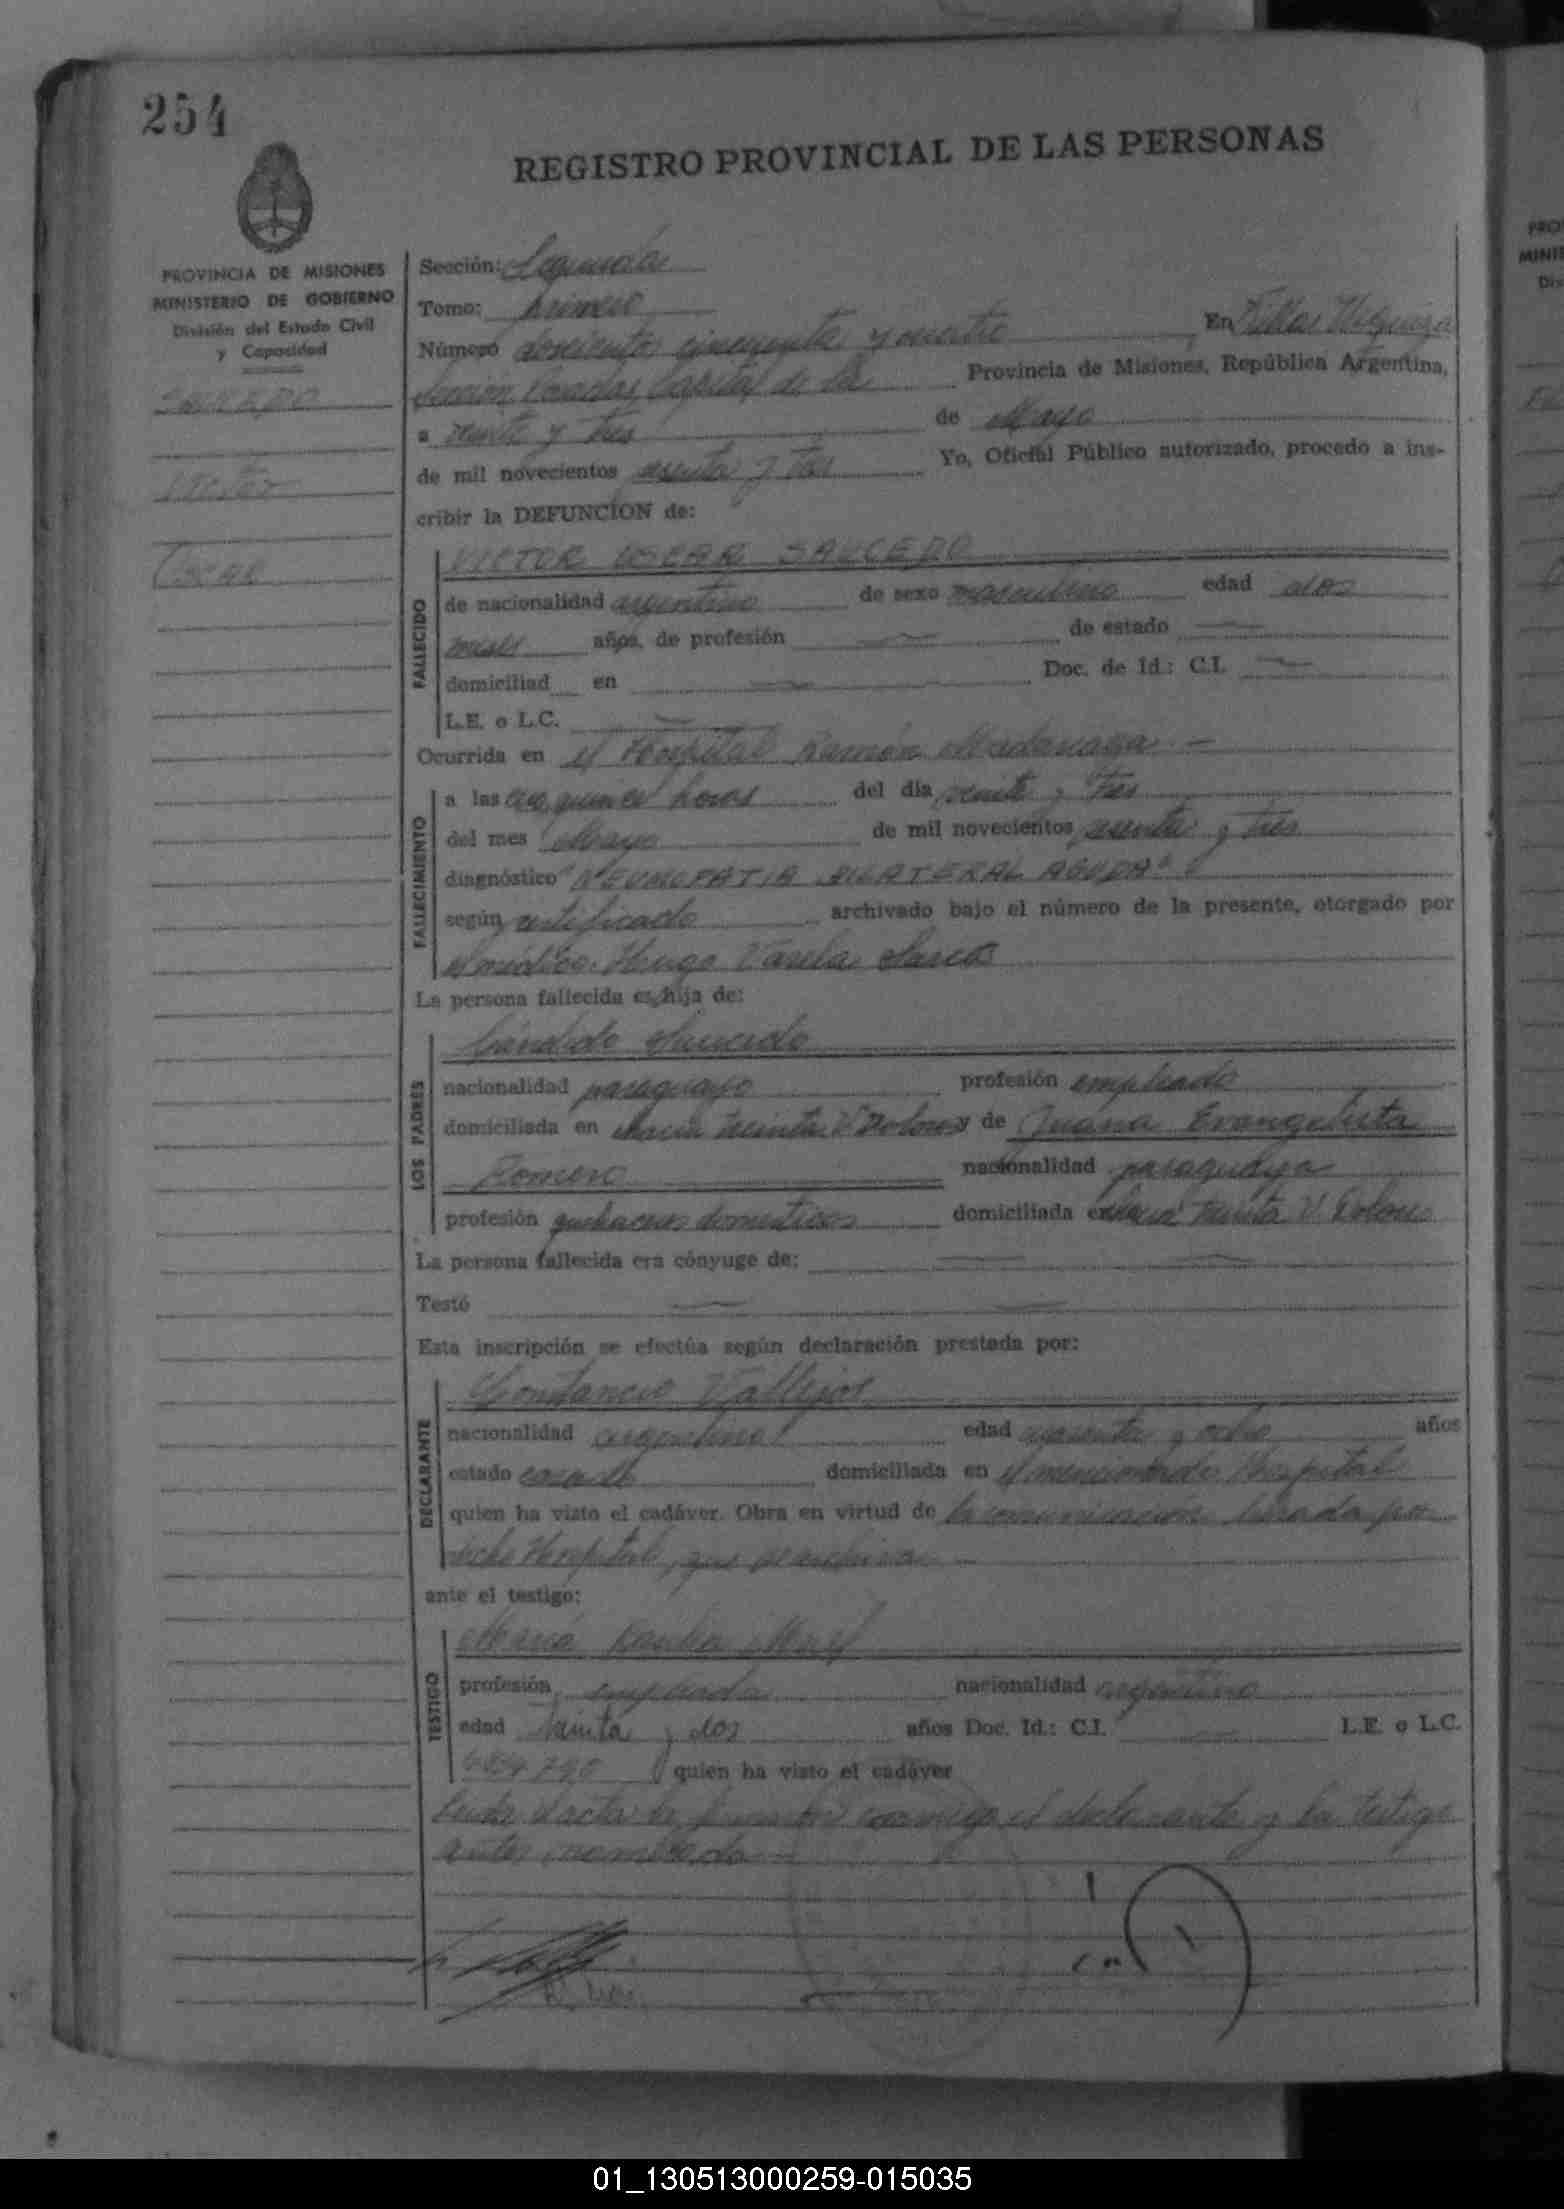 254
REGISTRO PROVINCIAL DE LAS PERSONAS
PROVINCIA DE MISIONES
MINISTERIO DE GOBIERNO
División del Estado Civil
y Capacidad
SAUCEDO
Victor
Oscar
Sección: Segunda
Tomo: primero
Número doscientos cincuenta y cuatro En Villa
Sección Posadas Capital de la Provincia de Misiones, República Argentina,
a veinte y tres de Mayo
de mil novecientos sesenta y tres Yo, Oficial Público autorizado, procedo a ins-
cribir la DEFUNCION de:
FALLECIDO
VICTOR OSCAR SAUCEDO
de nacionalidad argentino de sexo masculino edad dos
meses años, de profesión de estado
domiciliad en Doc. de Id.: C.I.
L.E. o L.C.
Ocurrida en el Hospital Ramón Madariaga
FALLECIMIENTO
a las quince horas del día veinte y tres
del mes Mayo de mil novecientos sesenta y tres
diagnóstico "NEUMOPATIA BILATERAL AGUDA"
según certificado archivado bajo el número de la presente, otorgado por
el médico Hugo Varela
La persona fallecida es hija de:
LOS PADRES
Cándido Saucedo
nacionalidad paraguayo profesión empleado
domiciliada en chacra treinta V. Dolores y de Juana Evangelista
Romero nacionalidad paraguaya
profesión quehaceres domesticos domiciliada en chacra treinta V. Dolores
La persona fallecida era cónyuge de:
Testó
Esta inscripción se efectúa según declaración prestada por:
DECLARANTE
Constancio Vallejos
nacionalidad argentino edad y ocho años
estado casado domiciliada en el mencionado Hospital
quien ha visto el cadáver. Obra en virtud de la comunicación librada por
dicho Hospital, que se archiva
ante el testigo:
TESTIGO
María
profesión empleada nacionalidad argentina
edad treinta y dos años Doc. Id.: C.I. L.E. o L.C.
quien ha visto el cadáver
Leida el acta la firman conmigo el declarante y la testigo
antes nombrada
01_130513000259-015035